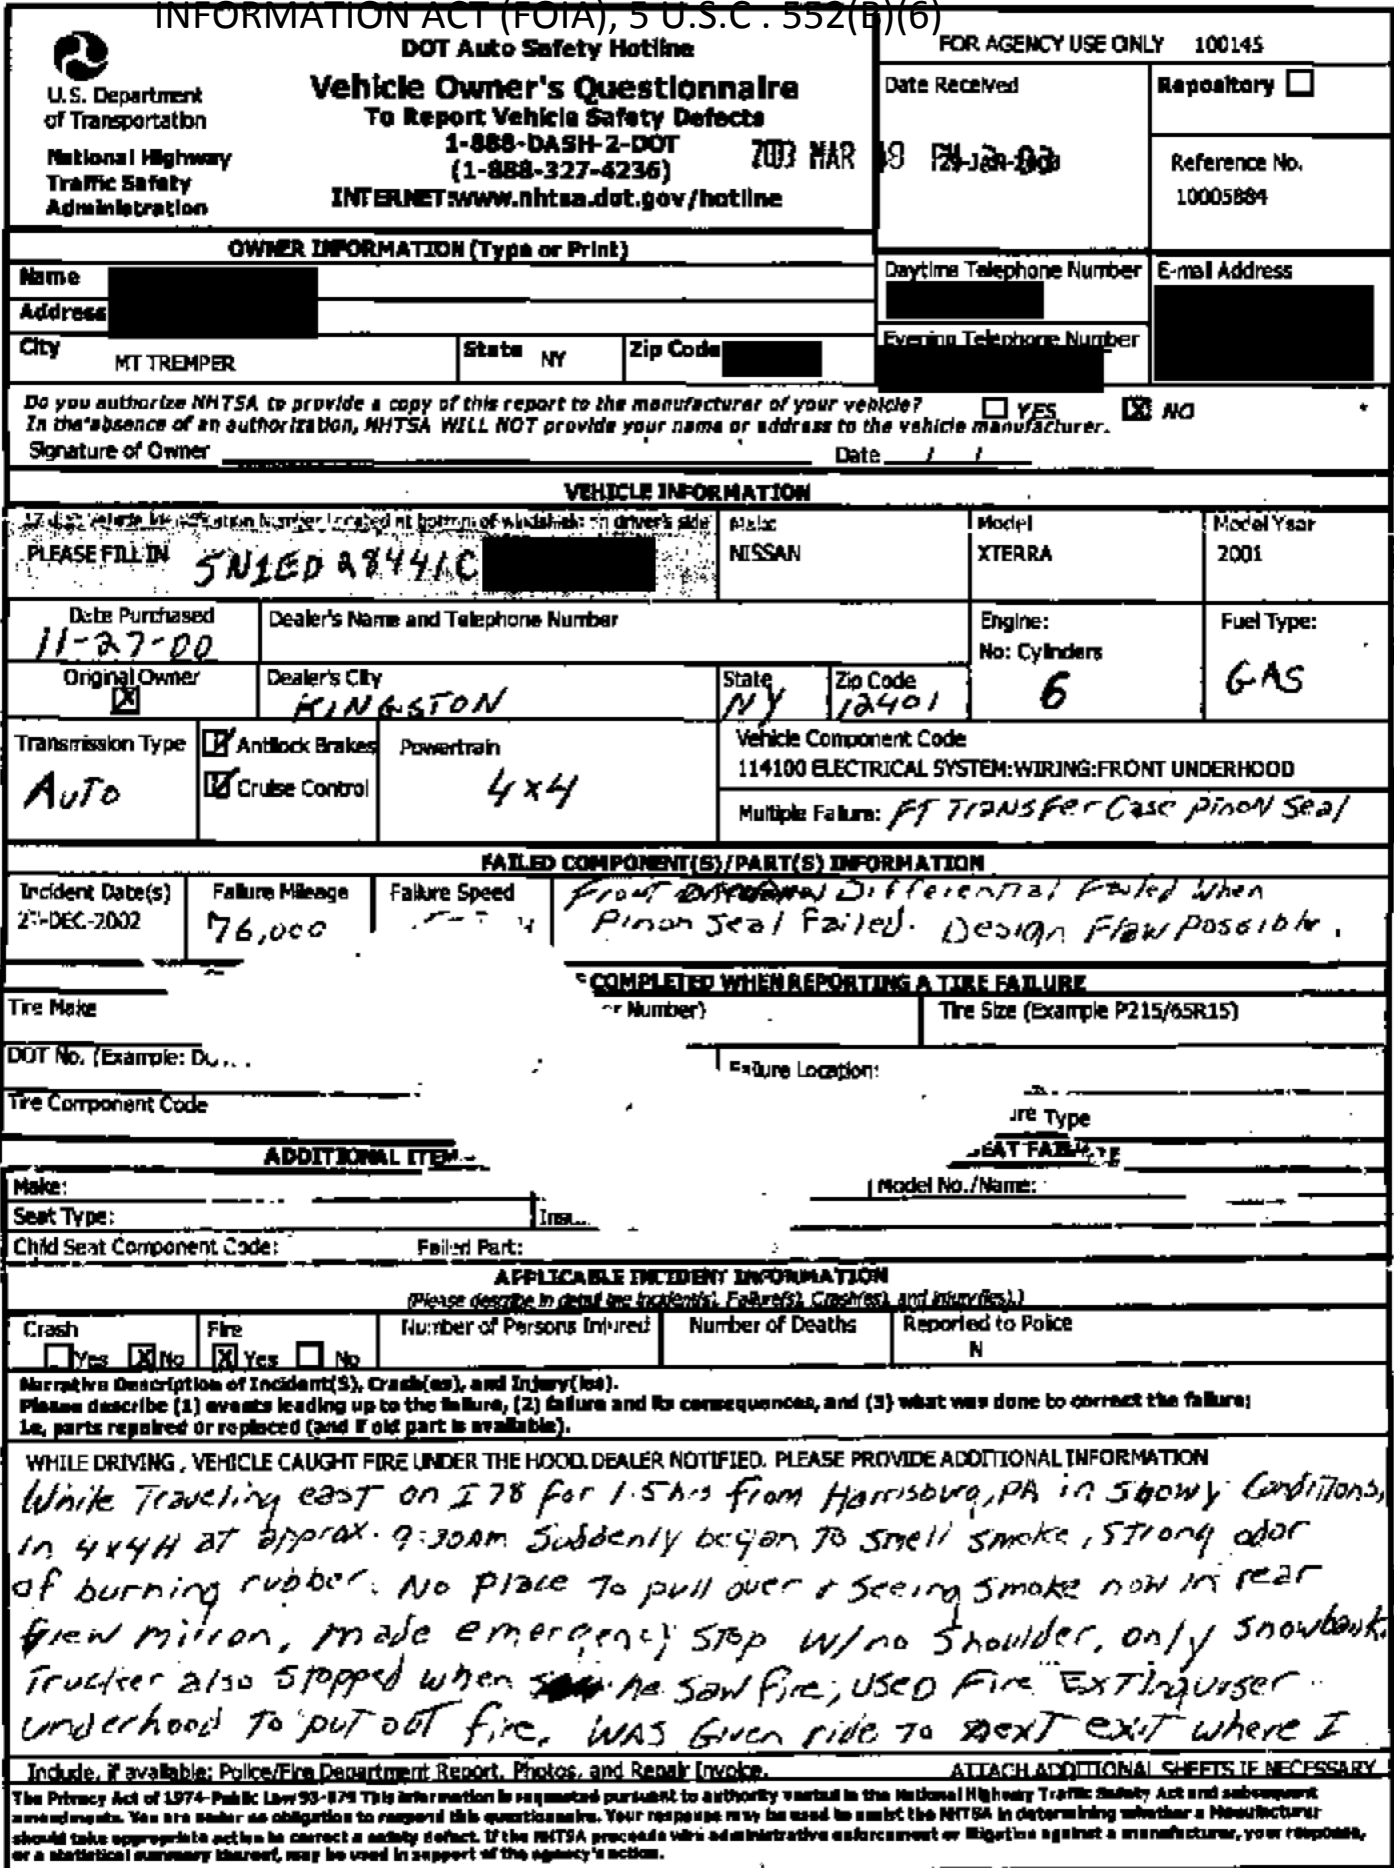 INFORMATION ACT (FOIA), 5 U.S.C . 552(B)(6)
U.S. Department
of Transportation
National Highway
Traffic Safety
Administration
DOT Auto Safety Hotline
Vehicle Owner's Questionnaire
To Report Vehicle Safety Defects
1-888-DASH-2-DOT
(1-888-327-4236)
INTERNET:www.nhtsa.dot.gov/hotline
FOR AGENCY USE ONLY 100145
Date Received
Repository
2003 MAR
Reference No.
10005884
OWNER INFORMATION (Type or Print)
Name
Address
City MT TREMPER State NY Zip Code
Daytime Telephone Number
E-mail Address
Evening Telephone Number
Do you authorize NHTSA to provide a copy of this report to the manufacturer of your vehicle? YES X NO
In the absence of an authorization, NHTSA WILL NOT provide your name or address to the vehicle manufacturer.
Signature of Owner Date / /
VEHICLE INFORMATION
Vehicle Identification Number Located at bottom of windshield on driver's side
PLEASE FILL IN 5N1ED28441C
Make
NISSAN
Model
XTERRA
Model Year
2001
Date Purchased
11-27-00
Dealer's Name and Telephone Number
Engine:
No: Cylinders
6
Fuel Type:
GAS
Original Owner
X
Dealer's City
KINGSTON
State
NY
Zip Code
12401
Transmission Type
AUTO
Antilock Brakes
Cruise Control
Powertrain
4x4
Vehicle Component Code
114100 ELECTRICAL SYSTEM:WIRING:FRONT UNDERHOOD
Multiple Failure: FT Transfer Case pinon Seal
FAILED COMPONENT(S)/PART(S) INFORMATION
Incident Date(s)
DEC-2002
Failure Mileage
76,000
Failure Speed
Front Differential Failed When
Pinon Seal Failed. Design Flaw Possible.
COMPLETED WHEN REPORTING A TIRE FAILURE
Tire Make
Number)
Tire Size (Example P215/65R15)
DOT No. (Example:
Failure Location:
Tire Component Code
Type
ADDITIONAL ITEM
Make:
Model No./Name:
Seat Type:
Child Seat Component Code:
Failed Part:
APPLICABLE INCIDENT INFORMATION
(Please describe in detail the Incident(s), Failure(s), Crash(es), and Injury(ies).)
Crash
Yes X No
Fire
X Yes No
Number of Persons Injured
Number of Deaths
Reported to Police
N
Narrative Description of Incident(S), Crash(es), and Injury(ies).
Please describe (1) events leading up to the failure, (2) failure and its consequences, and (3) what was done to correct the failure;
i.e, parts repaired or replaced (and if old part is available).
WHILE DRIVING , VEHICLE CAUGHT FIRE UNDER THE HOOD. DEALER NOTIFIED. PLEASE PROVIDE ADDITIONAL INFORMATION
While Traveling east on I 78 for 1.5 hrs from Harrisburg, PA in Snowy Conditions,
in 4x4H at approx. 9:30AM Suddenly began to smell smoke, strong odor
of burning rubber. No place to pull over & Seeing Smoke now in rear
view mirron, made emergency stop w/no shoulder, only snowbank.
Trucker also stopped when he saw fire, used Fire Extinquiser
underhood to put out fire. Was Given ride to next exit where I
Include, if available: Police/Fire Department Report, Photos, and Repair Invoice. ATTACH ADDITIONAL SHEETS IF NECESSARY
The Privacy Act of 1974-Public Law 93-579 This information is requested pursuant to authority vested in the National Highway Traffic Safety Act and subsequent
amendments. You are under no obligation to respond this questionnaire. Your response may be used to assist the NHTSA in determining whether a Manufacturer
should take appropriate action to correct a safety defect. If the NHTSA proceeds with administrative enforcement or litigation against a manufacturer, your response,
or a statistical summary thereof, may be used in support of the agency's action.